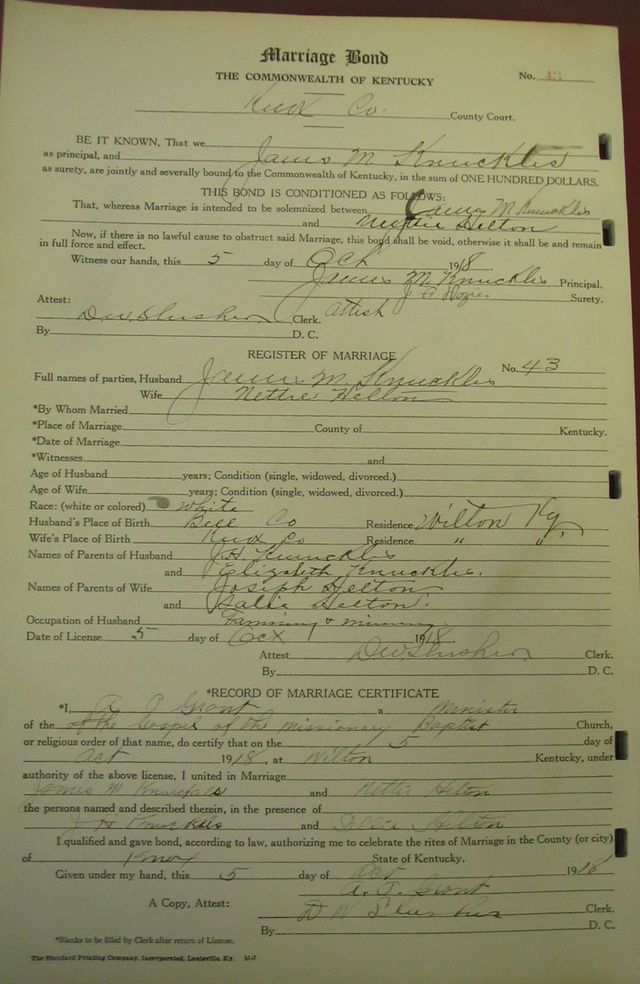 Marriage Bond
THE COMMONWEALTH OF KENTUCKY
No. 43
Knox Co. County Court.
BE IT KNOWN, That we James M Knuckles
as principal, and
as surety, are jointly and severally bound to the Commonwealth of Kentucky, in the sum of ONE HUNDRED DOLLARS.
THIS BOND IS CONDITIONED AS FOLLOWS:
That, whereas Marriage is intended to be solemnized between James M Knuckles
and Nettie Helton
Now, if there is no lawful cause to obstruct said Marriage, this bond shall be void, otherwise it shall be and remain
in full force and effect.
Witness our hands, this 5 day of Oct 1918.
James M Knuckles Principal.
Surety.
Attest:
D W Slusher Clerk. attest
By D. C.
REGISTER OF MARRIAGE
No. 43
Full names of parties, Husband James M. Knuckles
Wife Nettie Helton
*By Whom Married
*Place of Marriage County of Kentucky.
*Date of Marriage
*Witnesses and
Age of Husband years; Condition (single, widowed, divorced.)
Age of Wife years; Condition (single, widowed, divorced.)
Race: (white or colored) White
Husband's Place of Birth Bell Co Residence Wilton Ky,
Wife's Place of Birth Knox Co Residence " "
Names of Parents of Husband J.H Knuckles
and Elizabeth Knuckles.
Names of Parents of Wife Joseph Helton
and Sallie Helton.
Occupation of Husband Farming & mining
Date of License 5 day of Oct 1918
Attest D W Slusher Clerk.
By D. C.
*RECORD OF MARRIAGE CERTIFICATE
*I, A T Grant a Minister
of the of the Gospel of the Missionary Baptist Church,
or religious order of that name, do certify that on the 5 day of
Oct 1918, at Wilton Kentucky, under
authority of the above license, I united in Marriage
James M Knuckals and Nettie Helton
the persons named and described therein, in the presence of
J H Knuckles and Sallie Helton
I qualified and gave bond, according to law, authorizing me to celebrate the rites of Marriage in the County (or city)
of Knox State of Kentucky.
Given under my hand, this 5 day of Oct 1918
A. T. Grant
A Copy, Attest: D W Slusher Clerk.
By D. C.
*Blanks to be filled by Clerk after return of License.
The Standard Printing Company, Incorporated, Louisville, Ky. M-7